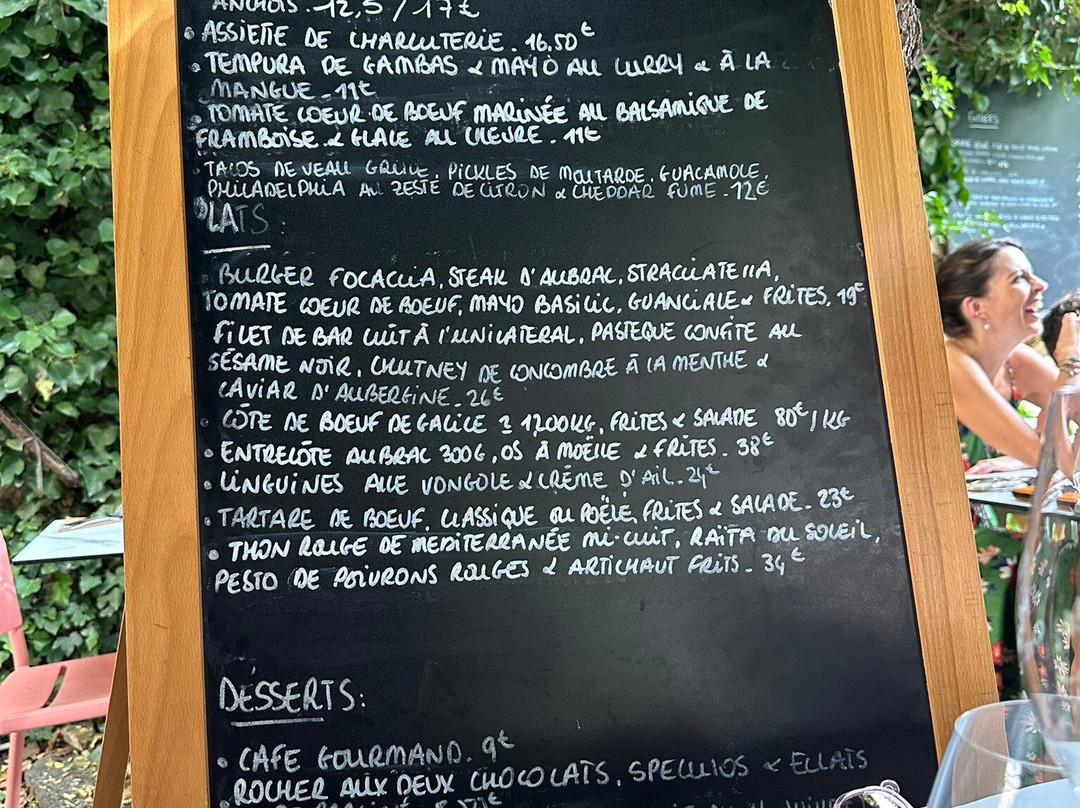 ANCHOIS. 12,5 / 17€
• ASSIETTE DE CHARCUTERIE. 16.50€
• TEMPURA DE GAMBAS & MAYO AU CURRY & À LA
MANGUE - 11€
• TOMATE COEUR DE BOEUF MARINÉE AU BALSAMIQUE DE
FRAMBOISE & GLACE AU CHEVRE. 11€
TACOS DE VEAU GRILLÉ, PICKLES DE MOUTARDE, GUACAMOLE,
PHILADELPHIA AU ZESTE DE CITRON & CHEDDAR FUME - 12€
PLATS:
BURGER FOCACCIA, STEAK D'AUBRAC, STRACCIATELLA,
TOMATE COEUR DE BOEUF, MAYO BASILIC, GUANCIALE & FRITES. 19€
FILET DE BAR CUIT À L'UNILATERAL, PASTEQUE CONFITE AU
SÉSAME NOIR, CHUTNEY DE CONCOMBRE À LA MENTHE &
CAVIAR D'AUBERGINE. 26€
• CÔTE DE BOEUF DE GALICE ± 1200KG, FRITES & SALADE 80€/KG
• ENTRECÔTE AUBRAC 300G, OS À MOËLLE & FRITES. 38€
• LINGUINES ALLE VONGOLE & CRÈME D'AIL. 24€
• TARTARE DE BOEUF, CLASSIQUE OU POÊLÉ, FRITES & SALADE. 23€
• THON ROUGE DE MEDITERRANÉE MI-CUIT, RAÏTA DU SOLEIL,
PESTO DE POIVRONS ROUGES & ARTICHAUT FRITS - 34€
DESSERTS:
• CAFE GOURMAND. 9€
• ROCHER AUX DEUX CHOCOLATS, SPECULIOS & ECLATS